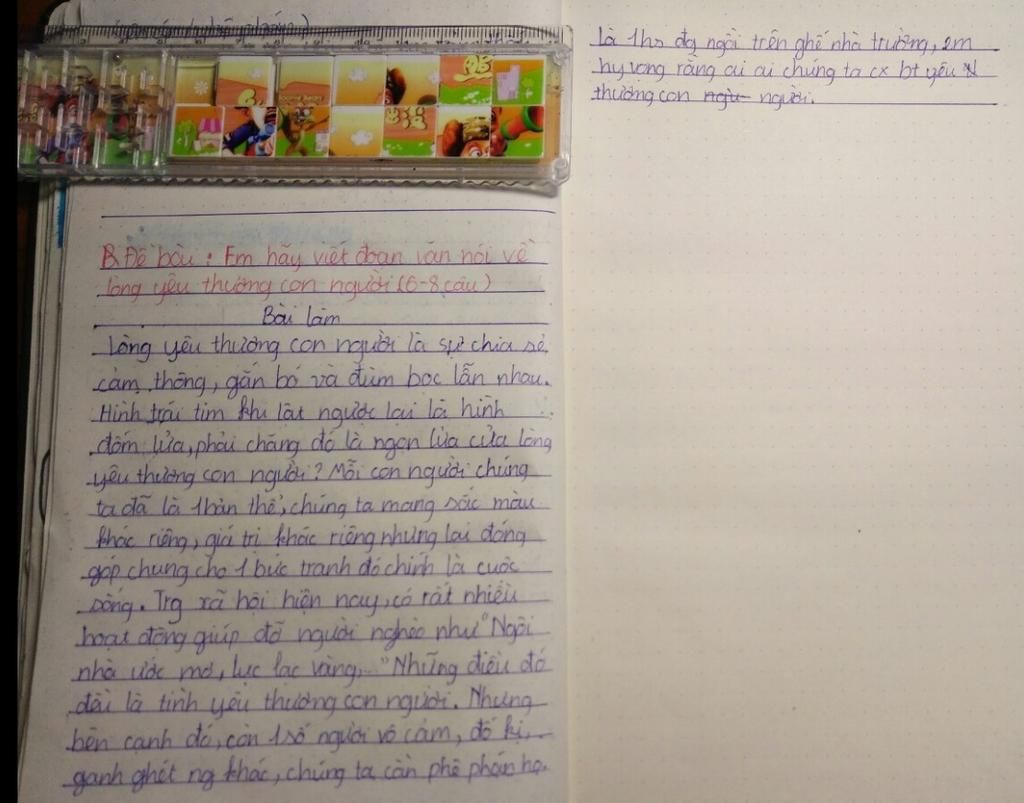 B. Đề bài: Em hãy viết đoạn văn nói về
lòng yêu thương con người (6-8 câu)
Bài làm
Lòng yêu thương con người là sự chia sẻ,
cảm thông, gắn bó và đùm bọc lẫn nhau.
Hình trái tim khi lật ngược lại là hình
đốm lửa, phải chăng đó là ngọn lửa của lòng
yêu thương con người? Mỗi con người chúng
ta đã là 1 bản thể, chúng ta mang sắc màu
khác riêng, giá trị khác riêng nhưng lại đóng
góp chung cho 1 bức tranh đó chính là cuộc
sống. Trg xã hội hiện nay, có rất nhiều
hoạt động giúp đỡ người nghèo như "Ngôi
nhà ước mơ, lục lạc vàng,..." Những điều đó
đều là tình yêu thương con người. Nhưng
bên cạnh đó, còn 1 số người vô cảm, đố kị,
ganh ghét ng khác, chúng ta cần phê phán họ.
Là 1 hs đg ngồi trên ghế nhà trường, em
hy vọng rằng ai ai chúng ta cx bt yêu
thương con ngừ người.